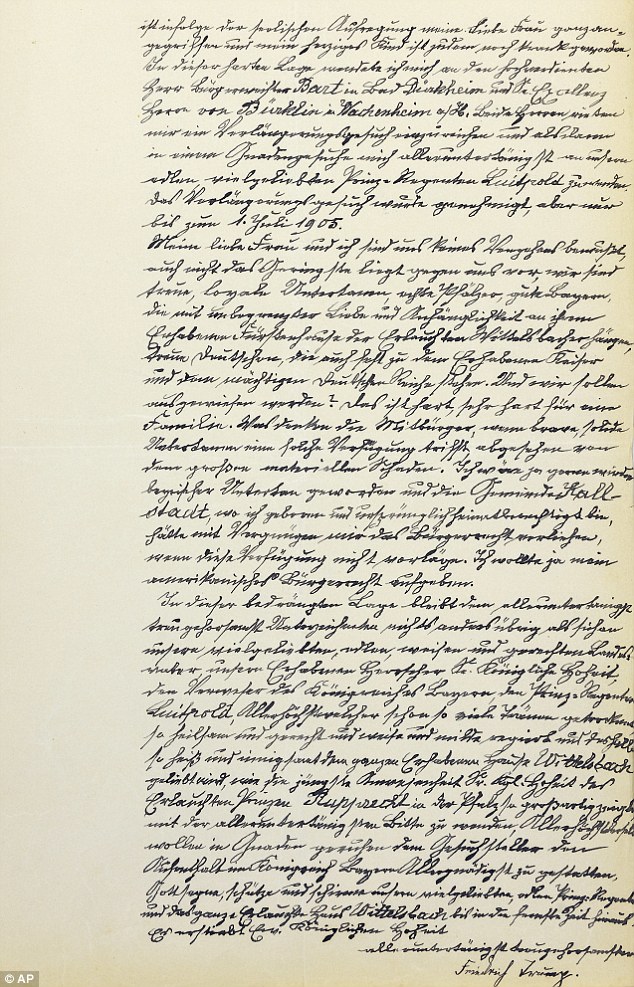 ist infolge der seelischen Aufregung meine liebe Frau ganz an-
gegriffen und mein herziges Kind ist zudem noch krank geworden.
In dieser harten Lage wendete ich mich an den hochverdienten
Herr Bürgermeister Bart in Bad Dürkheim und Sr. Exellenz
Herrn von Bürklin in Wachenheim a/H. Beide Herren rieten
mir ein Verlängerungsgesuch einzureichen und alsdann
in einem Gnadengesuche mich alleruntertänigst an unsern
edlen vielgeliebten Prinz-Regenten Luitpold zu wenden.
Das Verlängerungsgesuch wurde genehmigt, aber nur
bis zum 1. Juli 1905.
Meine liebe Frau und ich sind uns keines Vergehens bewußt,
auch nicht das Geringste liegt gegen uns vor, wir sind
treue, loyale Untertanen, echte Pfälzer, gute Bayern,
die mit unbegrenzter Liebe und Anhänglichkeit an ihrem
Erhabenen Fürstenhause der Erlauchten Wittelsbacher hängen,
treue Deutsche, die auch fest zu dem Erhabenen Kaiser
und dem mächtigen Deutschen Reiche stehen. Und wir sollen
ausgewiesen werden? Das ist hart, sehr hart für eine
Familie. Was denken die Mitbürger, wenn brave, solide
Untertanen eine solche Verfügung trifft, abgesehen von
dem großen materiellen Schaden. Ich wäre ja gerne wieder
bayrischer Untertan geworden und die Gemeinde Kall-
stadt, wo ich geboren und ursprünglich heimatberechtigt bin,
hätte mit Vergnügen mir das Bürgerrecht verliehen,
wenn diese Verfügung nicht vorläge. Ich wollte ja mein
amerikanisches Bürgerrecht aufgeben.
In dieser bedrängten Lage bleibt dem alleruntertänigst
treugehorsamst Unterzeichneten nichts anders übrig als sich an
unsern vielgeliebten, edlen, weisen und gerechten Landes-
vater unsern Erhabenen Herrscher Sr. Königliche Hoheit,
den Verweser des Königreiches Bayern den Prinz-Regenten
Luitpold, Allerhöchstwelcher schon so viele Tränen getrocknet
so heilsam und gerecht und weise und milde regiert und deshalb
so heiß und innig samt dem ganzen Erhabenen Hause Wittelsbach
geliebt wird, wie die jüngste Anwesenheit Sr. Kgl. Hoheit des
Erlauchten Prinzen Rupprecht in der Pfalz so großartig zeigte
mit der alleruntertänigsten Bitte zu wenden, Allerhöchstderselbe
wollen in Gnaden geruhen dem Gesuchsteller den
Aufenthalt im Königreich Bayern Allergnädigst zu gestatten,
Gott segne, schütze und schirme unsern vielgeliebten, edlen Prinz-Regenten
und das ganze Erlauchte Haus Wittelsbach bis in die fernste Zeit hinaus.
Es erstirbt Ew. Königlichen Hoheit
alleruntertänigst treugehorsamster
Friedrich Trump.
© AP